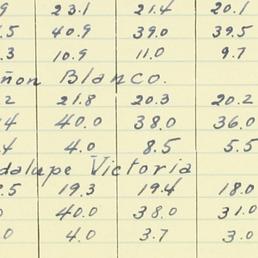 9 23.1 21.4 20.1
.5 40.9 39.0 39.5
.3 10.9 11.0 9.7
ñon Blanco.
.2 21.8 20.3 20.2
.4 40.0 38.0 36.0
.4 4.0 8.5 5.5
dalupe Victoria
.5 19.3 19.4 18.0
0 40.0 38.0 31.0
.0 4.0 3.7 3.0